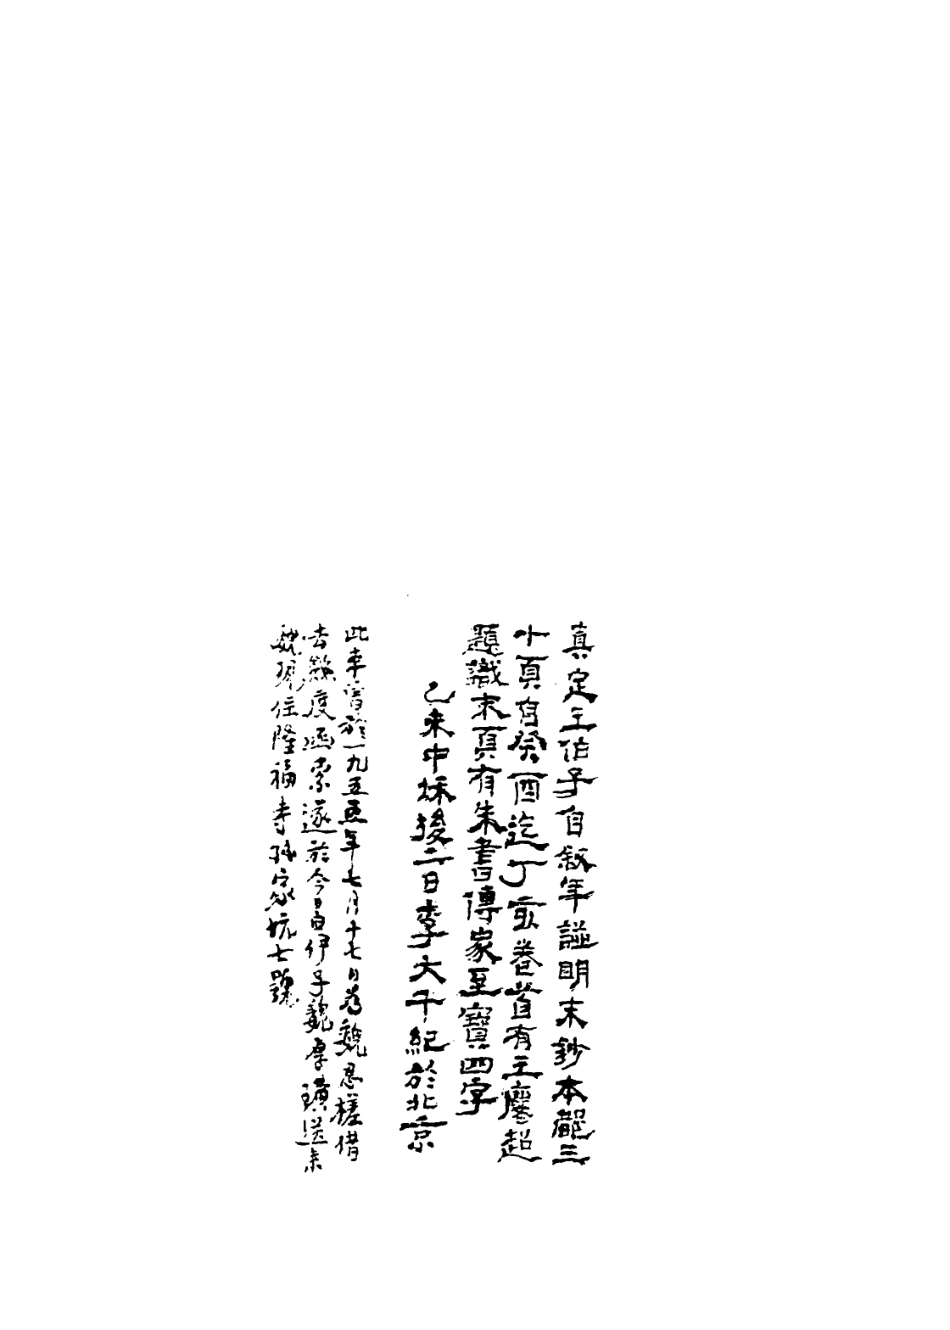 真定王伯子自敘年譜明末鈔本龍三
十頁自癸酉迄丁亥卷首有王麐超
題識末頁有朱書傳家至寶四字
乙未中秌後二日李大千紀於北京
此本曾於一九五五年七月十七日為魏恩槎借
去數度函索遂於今日由伊子魏摩璜送来
魏現住隆福寺孫家坑七號